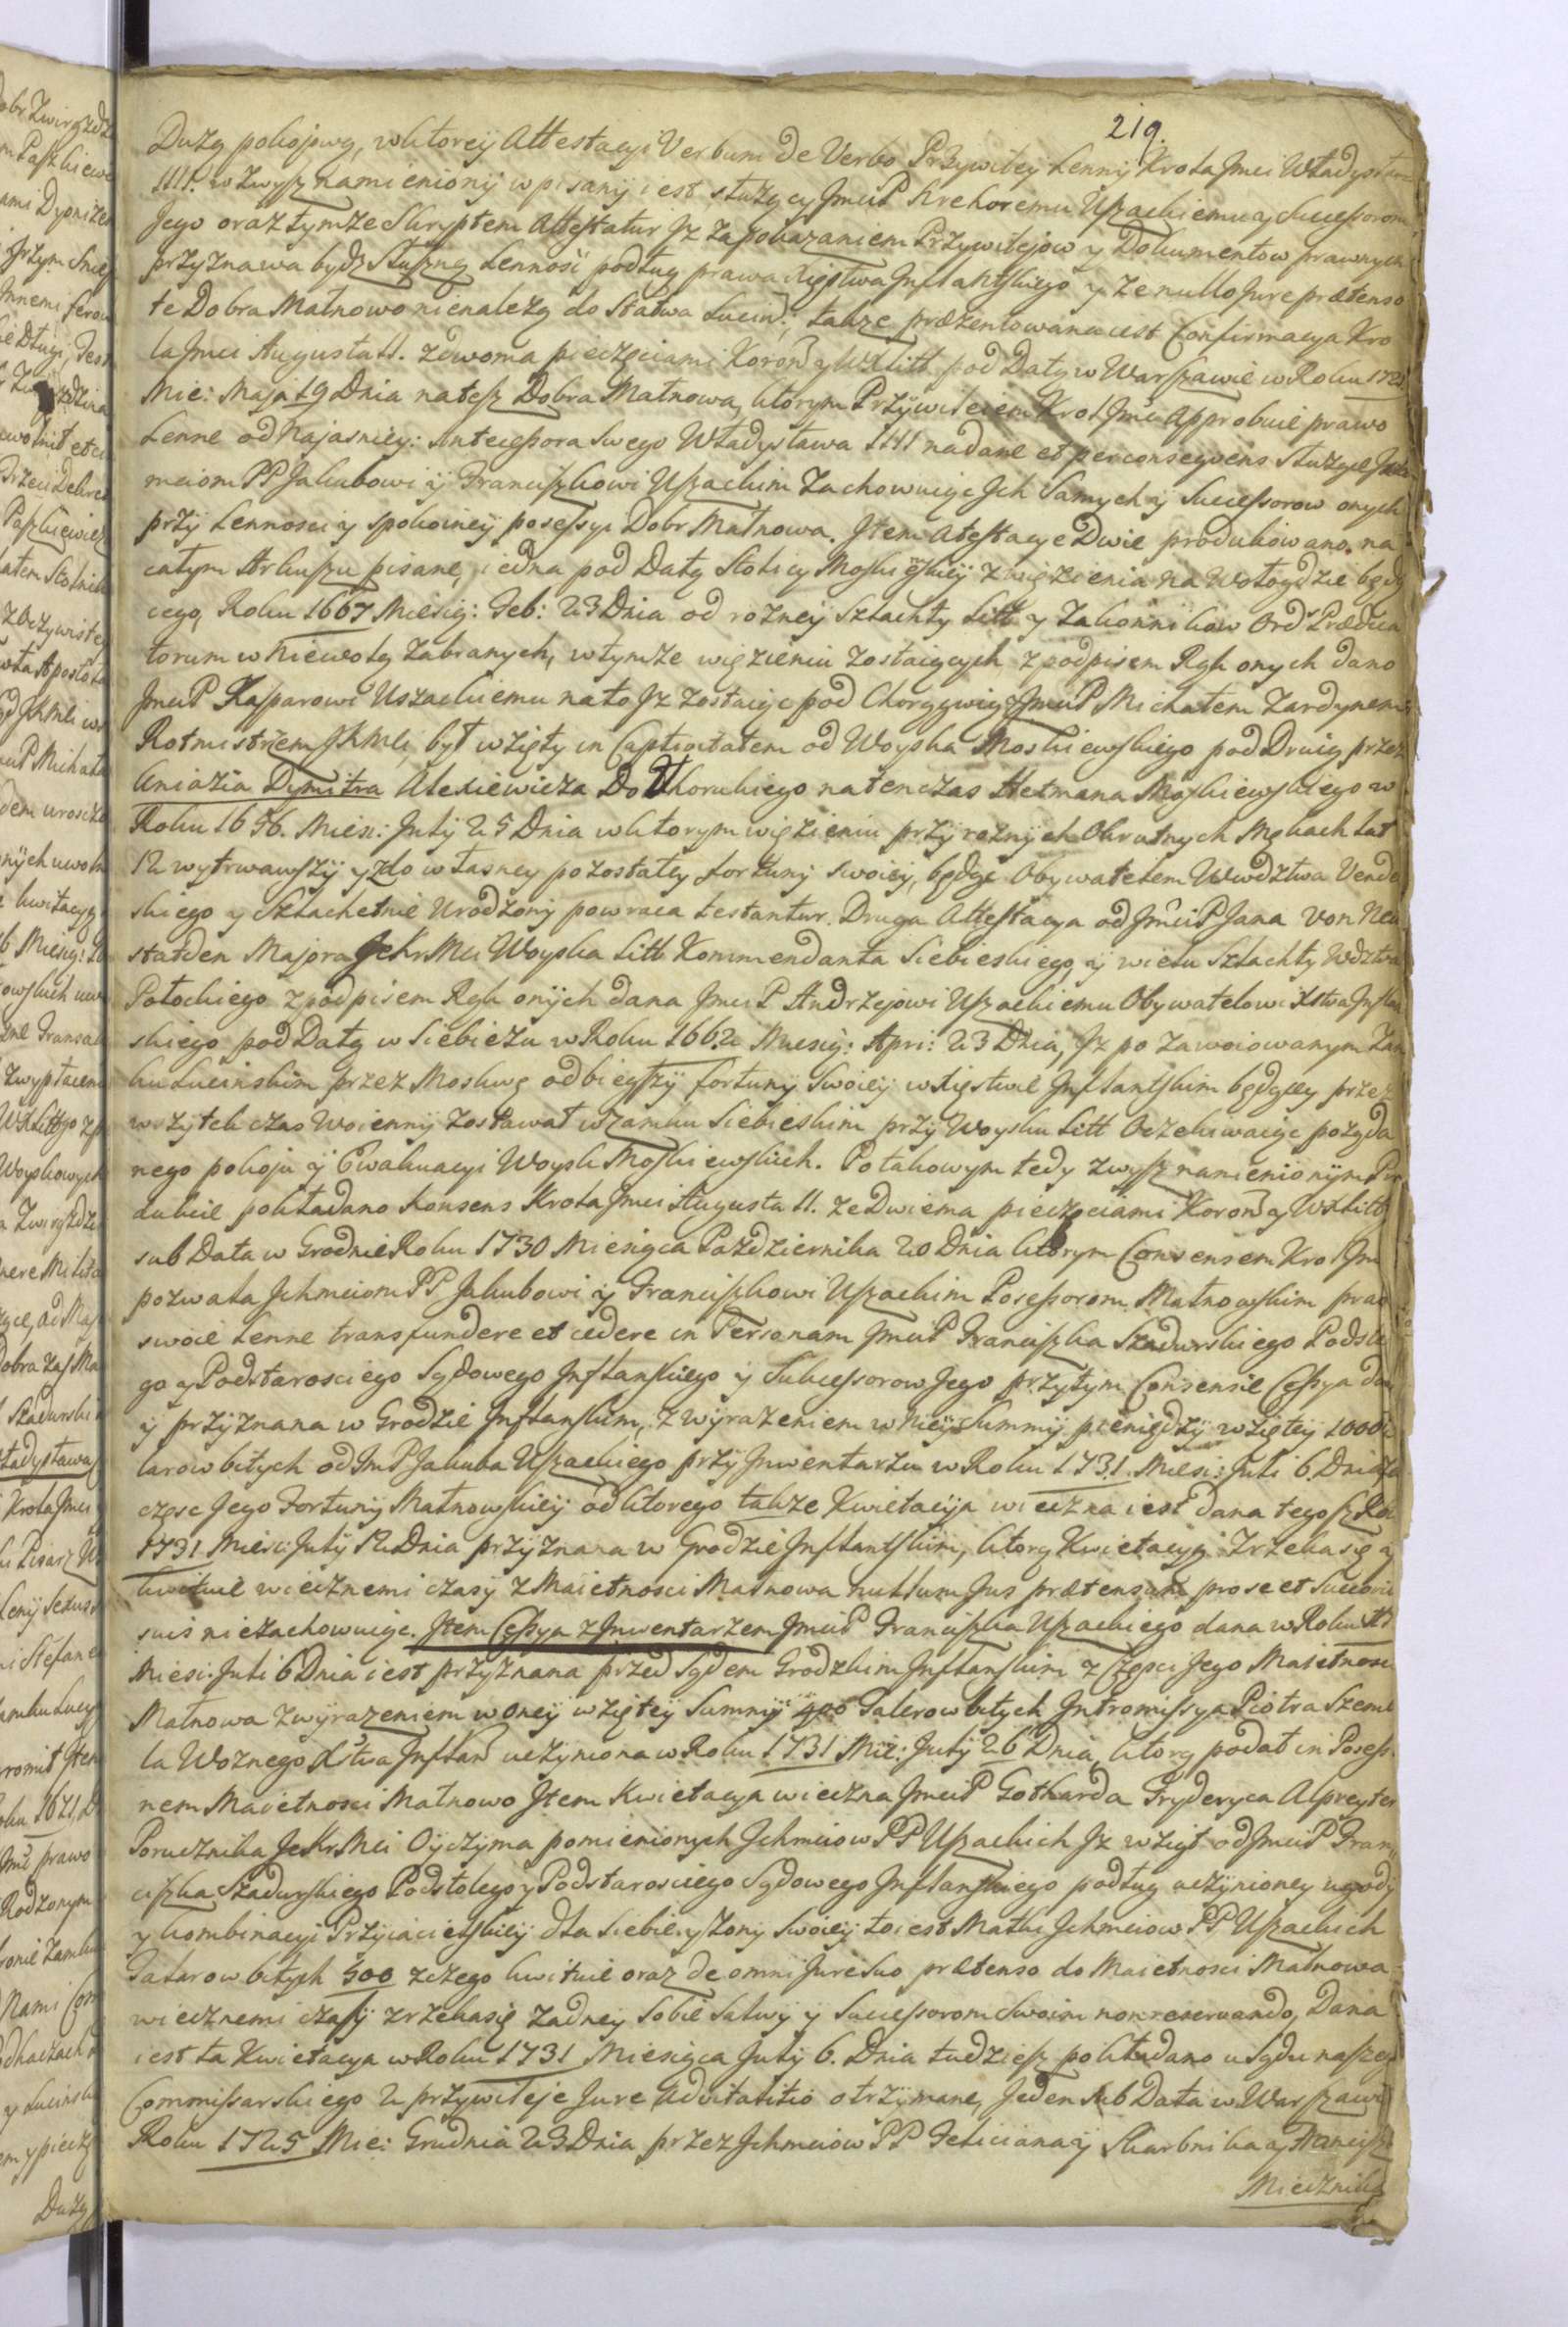 219.
Dużą pokojową, w ktorey Attestacyi Verbum de Verbo Przywiley Lenny Krola Jmci Władysława
IIII. w zwysz namieniony wpisany iest, słuzący JmciP Krehoremu Uszackiemu y Successorom
Jego oraz tymze Skryptem Attestatur Jz za pokazaniem Przywilejow y Dokumentow prawnych
przyznawa bydz Słuszną Lennośc podług prawa Xięstwa Inflantskiego y ze nullo Jure prætenso
te Dobra Małnowo nienalezą do Statwa Lucin: , takze prezentowana iest Confirmacya Kro
la Jmci Augusta II. zdwoma pieczęciami Koron y WXLitt pod Datą w Warszawie w Roku 172
Mie: Maja 19 Dnia na tesz Dobra Małnowa, ktorym Przywileiem Krol Jmc Approbuie prawo
Lenne od Najasniey: Antecessora Swego Władysława IIII nadane et per conseqvens słuzące Ich
mciom PP Jakubowi y Franciszkowi Uszackim Zachowuiąc Ich Samych y Successorow onych
przy Lennosci y spokoiney posessyi Dobr Małnowa. Item Atestacye Dwie produkowano. na
całym Arkuszu pisane, iedna pod Datą Stolicy Moskiewskiey z więzienia na Wołogdzie będą
cego, Roku 1667 Miesią: Feb: 23 Dnia od rozney Szlachty Litt y Zakonnikow Ord Prædica
torum w Niewolą Zabranych, w tymze więzieniu zostaiących z podpisem Rąk onych dano
JmciP Kasparowi Uszackiemu na to Jz zostaiąc pod Chorągwią JmciP Michałem Zardynem
Rotmistrzem JKMci, był wzięty in Captivitatem od Woyska Moskiewskiego pod Drują przez
Kniazia Dymitra Alexiewicza Dołhorukiego natenczas Hetmana Moskiewskiego w
Roku 1656. Miesi: July 25 Dnia w ktorym więzieniu przy roznych Okrutnych Mękach Lat
12 wytrwawszy y do własney pozostałey fortuny swoiey, będąc Obywatelem Wwdztwa Vende
skiego y Szlachetnie Urodzony powraca testantur. Druga Attestacya od JmciP Jana Von Neu
stadden Majora JeKrMci Woyska Litt Kommendanta Siebieskiego y wielu Szlachty Wdztwa
Połockiego z podpisem Rąk onych dana JmciP Andrzejowi Uszackiemu Obywatelowi Xstwa Inflan
skiego pod Datą w Siebiezu w Roku 1662 Miesią: Apri: 23 Dnia, Jz po zawoiowanym Zam
ku Lucinskim przez Moskwę odbiegszy fortuny Swoiey w Xięstwie Inflantskim będącey przez
wszytek czas Woienny zostawał w zamku Siebieskim przy Woysku Litt Oczekiwaiąc poząda
nego pokoju y Ewakuacyi Woysk Moskiewskich. Po takowym tedy zwysz namienionym Pro
dukcie pokładano Konsens Krola Jmci Augusta II. ze Dwiema pieczęciami Koron y WXLitt
sub Data w Grodnie Roku 1730 Miesiąca Pazdziernika 20 Dnia ktorym Consensem Krol Jmc
pozwala Jchmciom PP Jakubowi y Franciszkowi Uszackim Posessorom Małnowskim prawo
swoie Lenne transfundere et cedere in Personam JmciP Franciszka Szadurskiego Podsto
go y Podstarosciego Sądowego Inflanskiego y Sukcessorow Jego przytym Consensie Cessya dana
y przyznana w Grodzie Inflanskim, z wyrazeniem w niey Summy pieniędzy wziętey 1000
larow bitych od ImP Jakuba Uszackiego przy Inwentarzu w Roku 1731. Miesi: Juli 6. Dnia za
częsc Jego Fortuny Małnowskiey od ktorego takze Kwietacyja wieczna iest dana tegosz Roku
1731 Miesi: July 12 Dnia przyznana w Grodzie Inflantskim, ktorą Kwietacyą Zrzeka się y
kwituie wiecznemi czasy z Maietnosci Małnowa nullum Jus prætensum pro se et Successo
suis niezachowuiąc. Item Cessya z Inwentarzem JmciP Franciszka Uszackiego dana w Roku
Miesi: Juli 6 Dnia iest przyznana przed Sądem Grodzkim Inflanskim z Częsci Jego Maietnosci
Małnowa z wyrazeniem w oney wziętey Summy 400 Talerow bitych Intromissya Piotra Szem
la Woznego Xstwa Inflan uczyniona w Roku 1731 Mie: July 26 Dnia, ktorą podał in Posess
nem Maietnosci Małnowo Item Kwietacya wieczna JmciP Gotharda Fryderyca Alpreyter
Porucznika JeKrMci Oyczyma pomienionych Jchmciow PP Uszackich Jz wziął od JmciP Fran
ciszka Szadurskiego Podstolego y Podstarosciego Sądowego Inflanskiego podług uczynioney ugody
y kombinacyi Przyiacielskiey dla siebie y zony swoiey to iest Matki Jchmciow PP Uszackich
Talarow bitych 500 zczego kwituie oraz de omni Jure suo prætenso do Maietnosci Małnowa
wiecznemi czasy zrzeka się zadney Sobie Salwy y Successorom Swoim non reservando, Dana
iest ta Kwietacya w Roku 1731 Miesiąca July 6. Dnia tudziesz pokładano u Sądu naszego
Commissarskiego 2 przywileje Jure Advitalitio otrzymane, Jeden sub Data w Warszawie
Roku 1725 Mie: Grudnia 23 Dnia przez Jchmciow PP Feliciana y Skarbnika y Franciszka
Miecznika